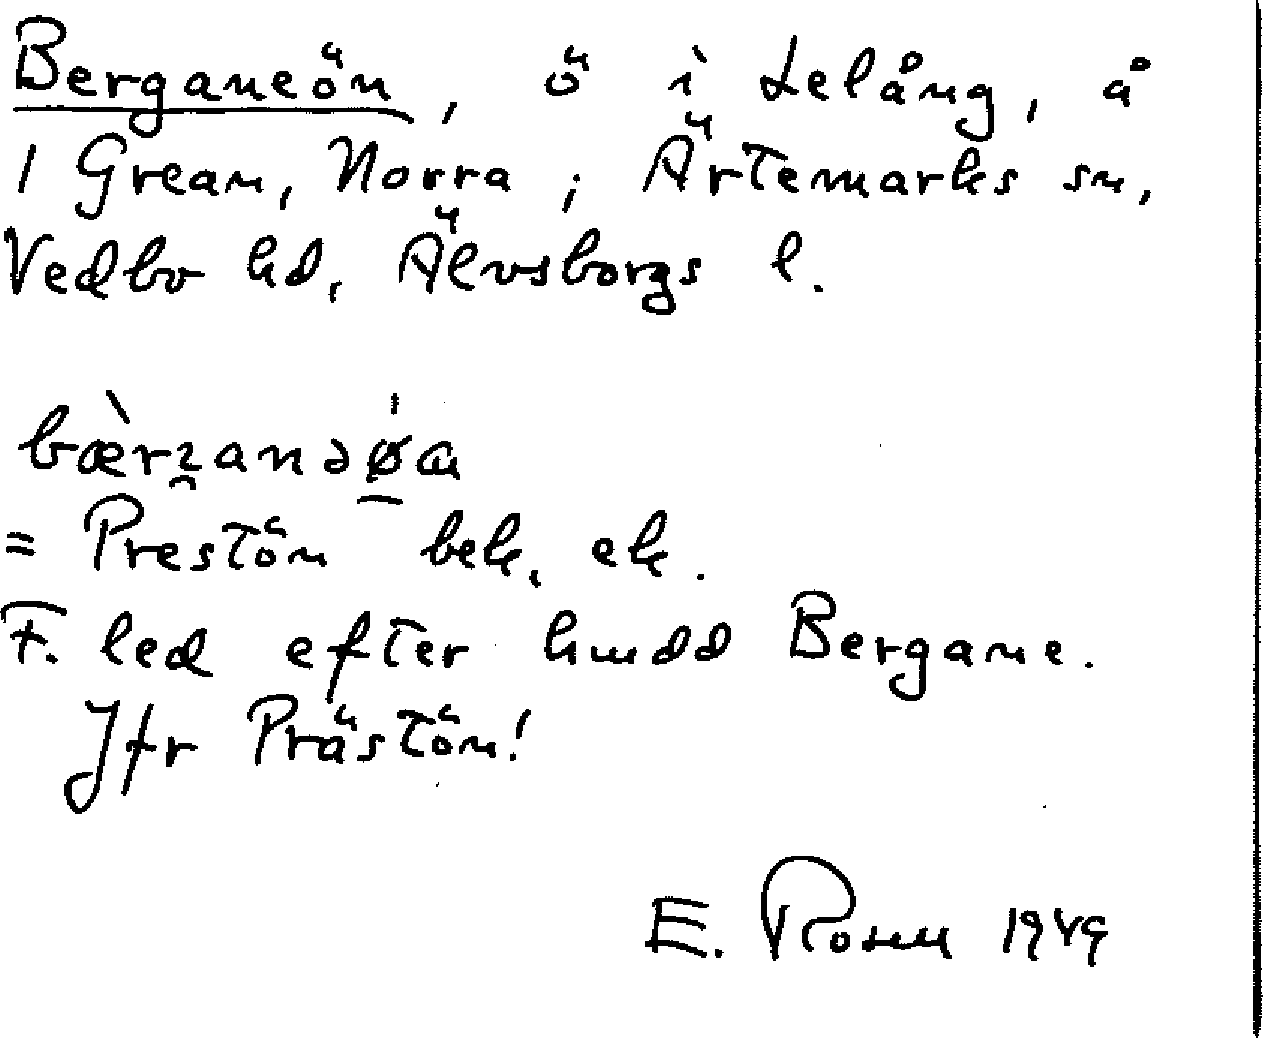 Berganeön, ö i Lelång, å
1 Grean, Norra ; Ärtemarks sn,
Vedbo hd, Älvsborgs l.
= Prestön bek. ek.
F. led efter hmdd Bergane.
Jfr Prästön!
E. Rosen 1949